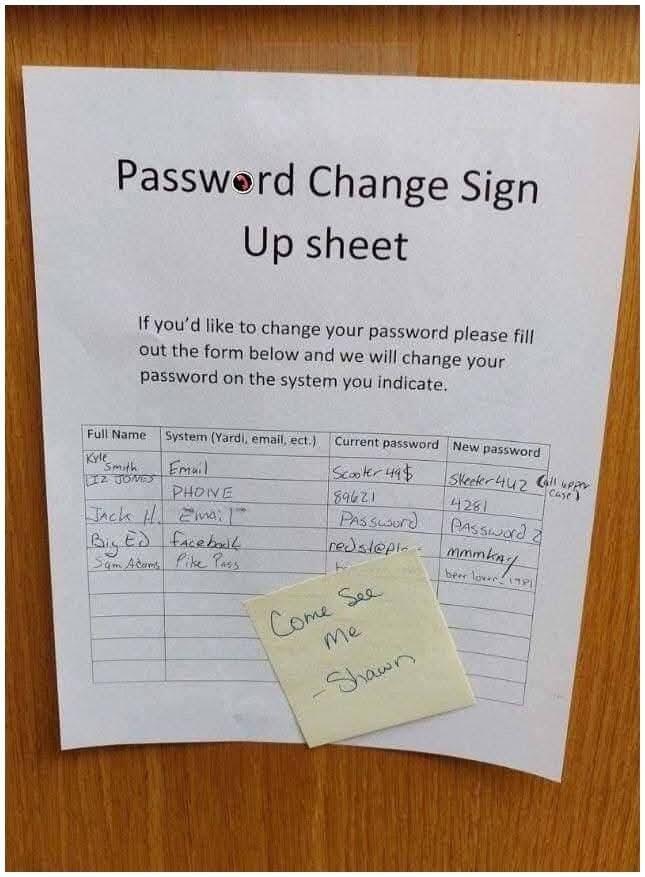 Password Change Sign
Up sheet
If you'd like to change your password please fill
out the form below and we will change your
password on the system you indicate.
Full Name System (Yardi, email, ect.) Current password New password
Kyle
Smith Email Scooter 49$ Skeeter 4U2 (all upper
case)
Liz Jones PHONE 89621 4281
Jack H. Email Password Password 2
Big Ed facebook mmmkay
Sam Adams Pike Pass beer lover 1981
Come See
Me
- Shawn